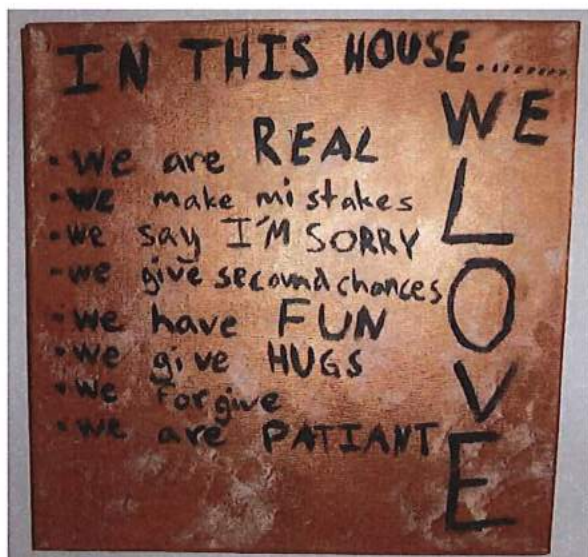 IN THIS HOUSE.........
• we are REAL
• we make mistakes
• we say I'M SORRY
• we give secound chances
• we have FUN
• we give HUGS
• we forgive
• we are PATIANT
WE
LOVE